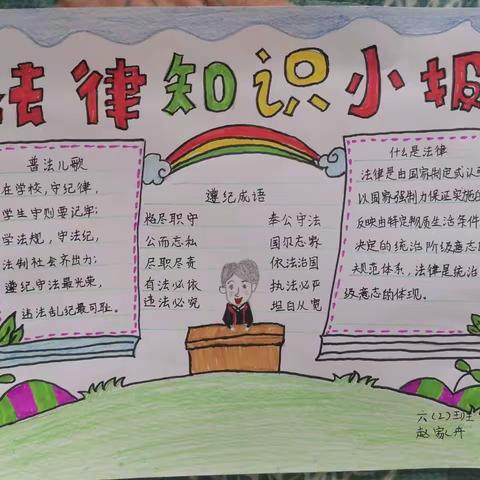 法律知识小报
普法儿歌
在学校,守纪律,
学生守则要记牢;
学法规,守法纪,
法制社会齐出力;
遵纪守法最光荣,
违法乱纪最可耻。
遵纪成语
恪尽职守 奉公守法
公而忘私 国尔忘家
尽职尽责 依法治国
有法必依 执法必严
违法必究 坦白从宽
什么是法律
法律是由国家制定或认
以国家强制力保证实施
反映由特定物质生活条件
决定的统治阶级意志
规范体系,法律是统治
级意志的体现。
六(2)班
赵家丹